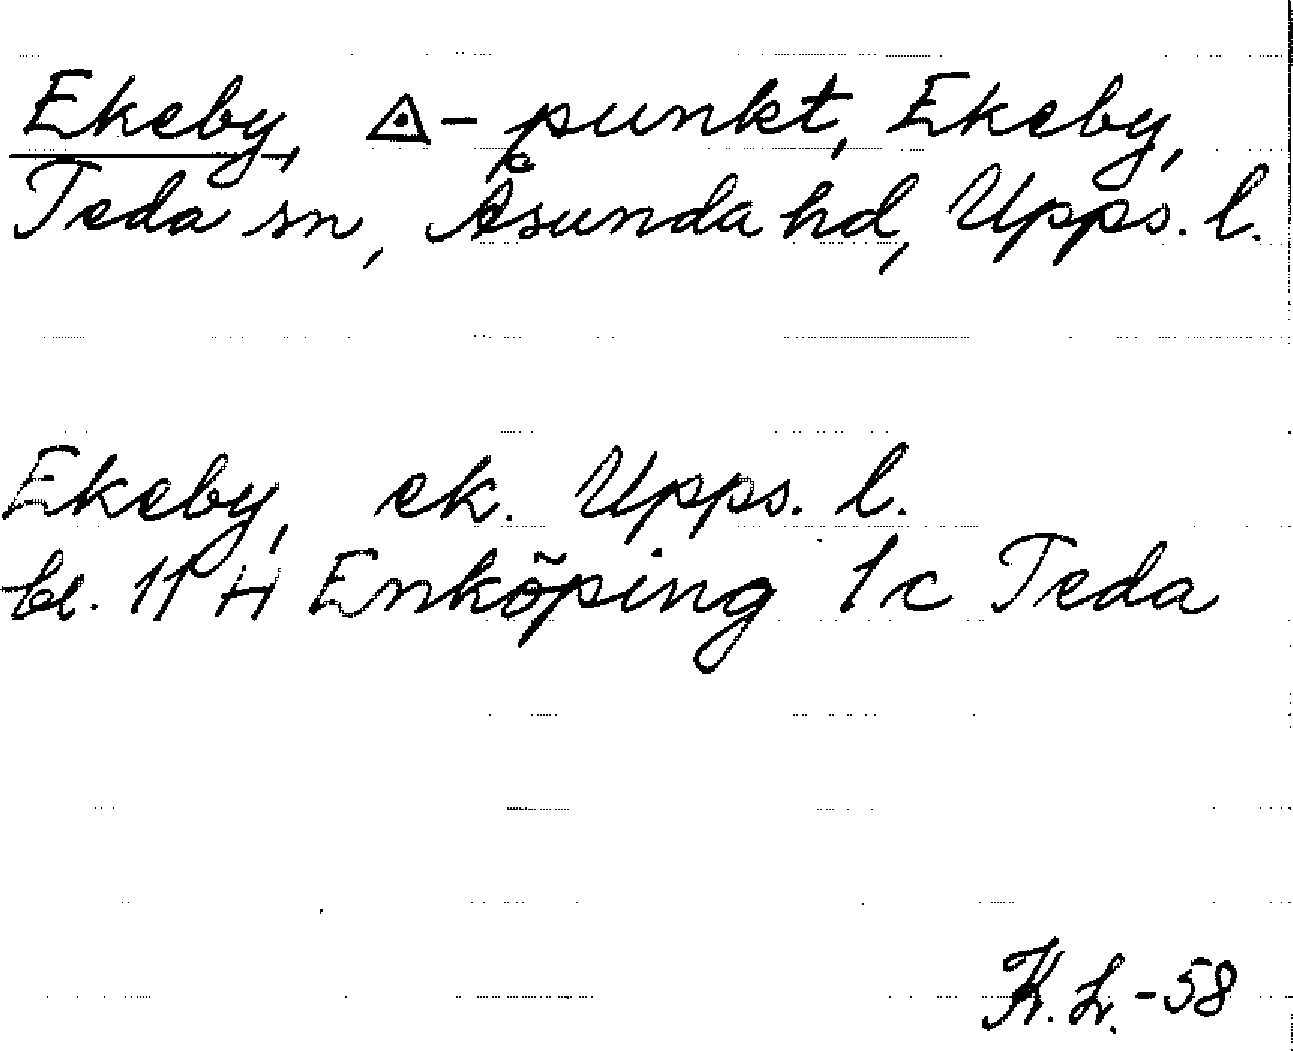 Ekeby, ◬-punkt, Ekeby,
Teda sn, Åsunda hd, Upps. l.
Ekeby, ek. Upps. l.
bl. 11 H Enköping 1c Teda
K. L. -58